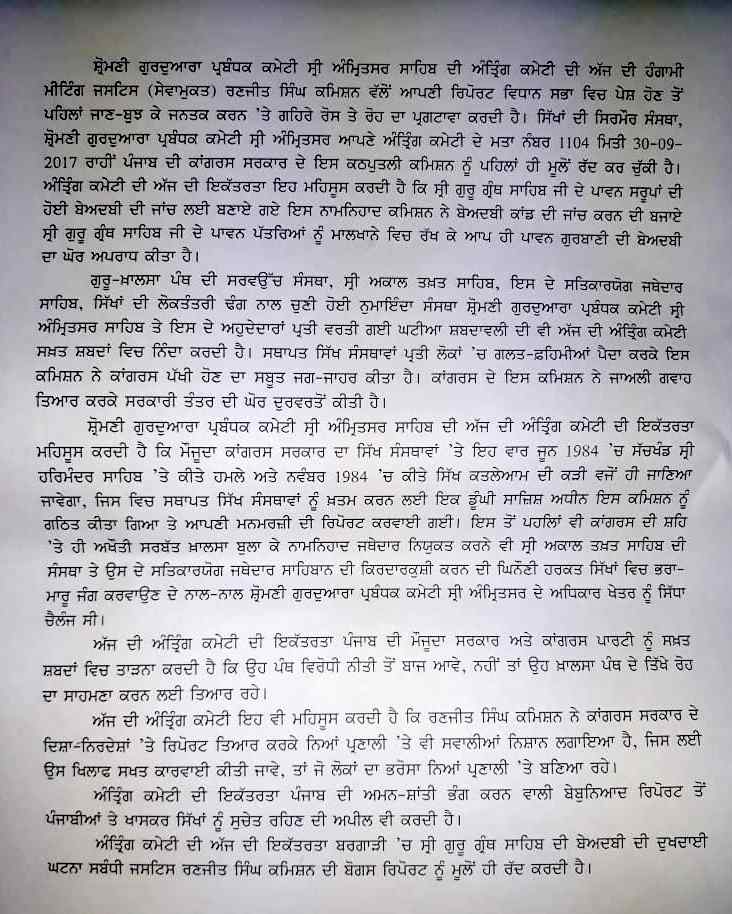 ਸ਼੍ਰੋਮਣੀ ਗੁਰਦੁਆਰਾ ਪ੍ਰਬੰਧਕ ਕਮੇਟੀ ਸ੍ਰੀ ਅੰਮ੍ਰਿਤਸਰ ਸਾਹਿਬ ਦੀ ਅੰਤ੍ਰਿੰਗ ਕਮੇਟੀ ਦੀ ਅੱਜ ਦੀ ਹੰਗਾਮੀ
ਮੀਟਿੰਗ ਜਸਟਿਸ (ਸੇਵਾਮੁਕਤ) ਰਣਜੀਤ ਸਿੰਘ ਕਮਿਸ਼ਨ ਵੱਲੋਂ ਆਪਣੀ ਰਿਪੋਰਟ ਵਿਧਾਨ ਸਭਾ ਵਿਚ ਪੇਸ਼ ਹੋਣ ਤੋਂ
ਪਹਿਲਾਂ ਜਾਣ-ਬੁਝ ਕੇ ਜਨਤਕ ਕਰਨ 'ਤੇ ਗਹਿਰੇ ਰੋਸ ਤੇ ਰੋਹ ਦਾ ਪ੍ਰਗਟਾਵਾ ਕਰਦੀ ਹੈ। ਸਿੱਖਾਂ ਦੀ ਸਿਰਮੌਰ ਸੰਸਥਾ,
ਸ਼੍ਰੋਮਣੀ ਗੁਰਦੁਆਰਾ ਪ੍ਰਬੰਧਕ ਕਮੇਟੀ ਸ੍ਰੀ ਅੰਮ੍ਰਿਤਸਰ ਆਪਣੇ ਅੰਤ੍ਰਿੰਗ ਕਮੇਟੀ ਦੇ ਮਤਾ ਨੰਬਰ 1104 ਮਿਤੀ 30-09-
2017 ਰਾਹੀਂ ਪੰਜਾਬ ਦੀ ਕਾਂਗਰਸ ਸਰਕਾਰ ਦੇ ਇਸ ਕਠਪੁਤਲੀ ਕਮਿਸ਼ਨ ਨੂੰ ਪਹਿਲਾਂ ਹੀ ਮੂਲੋਂ ਰੱਦ ਕਰ ਚੁੱਕੀ ਹੈ।
ਅੰਤ੍ਰਿੰਗ ਕਮੇਟੀ ਦੀ ਅੱਜ ਦੀ ਇਕੱਤਰਤਾ ਇਹ ਮਹਿਸੂਸ ਕਰਦੀ ਹੈ ਕਿ ਸ੍ਰੀ ਗੁਰੂ ਗ੍ਰੰਥ ਸਾਹਿਬ ਜੀ ਦੇ ਪਾਵਨ ਸਰੂਪਾਂ ਦੀ
ਹੋਈ ਬੇਅਦਬੀ ਦੀ ਜਾਂਚ ਲਈ ਬਣਾਏ ਗਏ ਇਸ ਨਾਮਨਿਹਾਦ ਕਮਿਸ਼ਨ ਨੇ ਬੇਅਦਬੀ ਕਾਂਡ ਦੀ ਜਾਂਚ ਕਰਨ ਦੀ ਬਜਾਏ
ਸ੍ਰੀ ਗੁਰੂ ਗ੍ਰੰਥ ਸਾਹਿਬ ਜੀ ਦੇ ਪਾਵਨ ਪੱਤਰਿਆਂ ਨੂੰ ਮਾਲਖਾਨੇ ਵਿਚ ਰੱਖ ਕੇ ਆਪ ਹੀ ਪਾਵਨ ਗੁਰਬਾਣੀ ਦੀ ਬੇਅਦਬੀ
ਦਾ ਘੋਰ ਅਪਰਾਧ ਕੀਤਾ ਹੈ।
ਗੁਰੂ-ਖ਼ਾਲਸਾ ਪੰਥ ਦੀ ਸਰਵਉੱਚ ਸੰਸਥਾ, ਸ੍ਰੀ ਅਕਾਲ ਤਖ਼ਤ ਸਾਹਿਬ, ਇਸ ਦੇ ਸਤਿਕਾਰਯੋਗ ਜਥੇਦਾਰ
ਸਾਹਿਬ, ਸਿੱਖਾਂ ਦੀ ਲੋਕਤੰਤਰੀ ਢੰਗ ਨਾਲ ਚੁਣੀ ਹੋਈ ਨੁਮਾਇੰਦਾ ਸੰਸਥਾ ਸ਼੍ਰੋਮਣੀ ਗੁਰਦੁਆਰਾ ਪ੍ਰਬੰਧਕ ਕਮੇਟੀ ਸ੍ਰੀ
ਅੰਮ੍ਰਿਤਸਰ ਸਾਹਿਬ ਤੇ ਇਸ ਦੇ ਅਹੁਦੇਦਾਰਾਂ ਪ੍ਰਤੀ ਵਰਤੀ ਗਈ ਘਟੀਆ ਸ਼ਬਦਾਵਲੀ ਦੀ ਵੀ ਅੱਜ ਦੀ ਅੰਤ੍ਰਿੰਗ ਕਮੇਟੀ
ਸਖ਼ਤ ਸ਼ਬਦਾਂ ਵਿਚ ਨਿੰਦਾ ਕਰਦੀ ਹੈ। ਸਥਾਪਤ ਸਿੱਖ ਸੰਸਥਾਵਾਂ ਪ੍ਰਤੀ ਲੋਕਾਂ 'ਚ ਗਲਤ-ਫ਼ਹਿਮੀਆਂ ਪੈਦਾ ਕਰਕੇ ਇਸ
ਕਮਿਸ਼ਨ ਨੇ ਕਾਂਗਰਸ ਪੱਖੀ ਹੋਣ ਦਾ ਸਬੂਤ ਜਗ-ਜਾਹਰ ਕੀਤਾ ਹੈ। ਕਾਂਗਰਸ ਦੇ ਇਸ ਕਮਿਸ਼ਨ ਨੇ ਜਾਅਲੀ ਗਵਾਹ
ਤਿਆਰ ਕਰਕੇ ਸਰਕਾਰੀ ਤੰਤਰ ਦੀ ਘੋਰ ਦੁਰਵਰਤੋਂ ਕੀਤੀ ਹੈ।
ਸ਼੍ਰੋਮਣੀ ਗੁਰਦੁਆਰਾ ਪ੍ਰਬੰਧਕ ਕਮੇਟੀ ਸ੍ਰੀ ਅੰਮ੍ਰਿਤਸਰ ਸਾਹਿਬ ਦੀ ਅੱਜ ਦੀ ਅੰਤ੍ਰਿੰਗ ਕਮੇਟੀ ਦੀ ਇਕੱਤਰਤਾ
ਮਹਿਸੂਸ ਕਰਦੀ ਹੈ ਕਿ ਮੌਜੂਦਾ ਕਾਂਗਰਸ ਸਰਕਾਰ ਦਾ ਸਿੱਖ ਸੰਸਥਾਵਾਂ 'ਤੇ ਇਹ ਵਾਰ ਜੂਨ 1984 'ਚ ਸੱਚਖੰਡ ਸ੍ਰੀ
ਹਰਿਮੰਦਰ ਸਾਹਿਬ 'ਤੇ ਕੀਤੇ ਹਮਲੇ ਅਤੇ ਨਵੰਬਰ 1984 'ਚ ਕੀਤੇ ਸਿੱਖ ਕਤਲੇਆਮ ਦੀ ਕੜੀ ਵਜੋਂ ਹੀ ਜਾਣਿਆ
ਜਾਵੇਗਾ, ਜਿਸ ਵਿਚ ਸਥਾਪਤ ਸਿੱਖ ਸੰਸਥਾਵਾਂ ਨੂੰ ਖ਼ਤਮ ਕਰਨ ਲਈ ਇਕ ਡੂੰਘੀ ਸਾਜ਼ਿਸ਼ ਅਧੀਨ ਇਸ ਕਮਿਸ਼ਨ ਨੂੰ
ਗਠਿਤ ਕੀਤਾ ਗਿਆ ਤੇ ਆਪਣੀ ਮਨਮਰਜ਼ੀ ਦੀ ਰਿਪੋਰਟ ਕਰਵਾਈ ਗਈ। ਇਸ ਤੋਂ ਪਹਿਲਾਂ ਵੀ ਕਾਂਗਰਸ ਦੀ ਸ਼ਹਿ
'ਤੇ ਹੀ ਅਖੌਤੀ ਸਰਬੱਤ ਖ਼ਾਲਸਾ ਬੁਲਾ ਕੇ ਨਾਮਨਿਹਾਦ ਜਥੇਦਾਰ ਨਿਯੁਕਤ ਕਰਨੇ ਵੀ ਸ੍ਰੀ ਅਕਾਲ ਤਖ਼ਤ ਸਾਹਿਬ ਦੀ
ਸੰਸਥਾ ਤੇ ਉਸ ਦੇ ਸਤਿਕਾਰਯੋਗ ਜਥੇਦਾਰ ਸਾਹਿਬਾਨ ਦੀ ਕਿਰਦਾਰਕੁਸ਼ੀ ਕਰਨ ਦੀ ਘਿਨੌਣੀ ਹਰਕਤ ਸਿੱਖਾਂ ਵਿਚ ਭਰਾ-
ਮਾਰੂ ਜੰਗ ਕਰਵਾਉਣ ਦੇ ਨਾਲ-ਨਾਲ ਸ਼੍ਰੋਮਣੀ ਗੁਰਦੁਆਰਾ ਪ੍ਰਬੰਧਕ ਕਮੇਟੀ ਸ੍ਰੀ ਅੰਮ੍ਰਿਤਸਰ ਦੇ ਅਧਿਕਾਰ ਖੇਤਰ ਨੂੰ ਸਿੱਧਾ
ਚੈਲੰਜ ਸੀ।
ਅੱਜ ਦੀ ਅੰਤ੍ਰਿੰਗ ਕਮੇਟੀ ਦੀ ਇਕੱਤਰਤਾ ਪੰਜਾਬ ਦੀ ਮੌਜੂਦਾ ਸਰਕਾਰ ਅਤੇ ਕਾਂਗਰਸ ਪਾਰਟੀ ਨੂੰ ਸਖ਼ਤ
ਸ਼ਬਦਾਂ ਵਿਚ ਤਾੜਨਾ ਕਰਦੀ ਹੈ ਕਿ ਉਹ ਪੰਥ ਵਿਰੋਧੀ ਨੀਤੀ ਤੋਂ ਬਾਜ ਆਵੇ, ਨਹੀਂ ਤਾਂ ਉਹ ਖ਼ਾਲਸਾ ਪੰਥ ਦੇ ਤਿੱਖੇ ਰੋਹ
ਦਾ ਸਾਹਮਣਾ ਕਰਨ ਲਈ ਤਿਆਰ ਰਹੇ।
ਅੱਜ ਦੀ ਅੰਤ੍ਰਿੰਗ ਕਮੇਟੀ ਇਹ ਵੀ ਮਹਿਸੂਸ ਕਰਦੀ ਹੈ ਕਿ ਰਣਜੀਤ ਸਿੰਘ ਕਮਿਸ਼ਨ ਨੇ ਕਾਂਗਰਸ ਸਰਕਾਰ ਦੇ
ਦਿਸ਼ਾ-ਨਿਰਦੇਸ਼ਾਂ 'ਤੇ ਰਿਪੋਰਟ ਤਿਆਰ ਕਰਕੇ ਨਿਆਂ ਪ੍ਰਣਾਲੀ 'ਤੇ ਵੀ ਸਵਾਲੀਆਂ ਨਿਸ਼ਾਨ ਲਗਾਇਆ ਹੈ, ਜਿਸ ਲਈ
ਉਸ ਖਿਲਾਫ ਸਖਤ ਕਾਰਵਾਈ ਕੀਤੀ ਜਾਵੇ, ਤਾਂ ਜੋ ਲੋਕਾਂ ਦਾ ਭਰੋਸਾ ਨਿਆਂ ਪ੍ਰਣਾਲੀ 'ਤੇ ਬਣਿਆ ਰਹੇ।
ਅੰਤ੍ਰਿੰਗ ਕਮੇਟੀ ਦੀ ਇਕੱਤਰਤਾ ਪੰਜਾਬ ਦੀ ਅਮਨ-ਸ਼ਾਂਤੀ ਭੰਗ ਕਰਨ ਵਾਲੀ ਬੇਬੁਨਿਆਦ ਰਿਪੋਰਟ ਤੋਂ
ਪੰਜਾਬੀਆਂ ਤੇ ਖਾਸਕਰ ਸਿੱਖਾਂ ਨੂੰ ਸੁਚੇਤ ਰਹਿਣ ਦੀ ਅਪੀਲ ਵੀ ਕਰਦੀ ਹੈ।
ਅੰਤ੍ਰਿੰਗ ਕਮੇਟੀ ਦੀ ਅੱਜ ਦੀ ਇਕੱਤਰਤਾ ਬਰਗਾੜੀ 'ਚ ਸ੍ਰੀ ਗੁਰੂ ਗ੍ਰੰਥ ਸਾਹਿਬ ਦੀ ਬੇਅਦਬੀ ਦੀ ਦੁਖਦਾਈ
ਘਟਨਾ ਸਬੰਧੀ ਜਸਟਿਸ ਰਣਜੀਤ ਸਿੰਘ ਕਮਿਸ਼ਨ ਦੀ ਬੋਗਸ ਰਿਪੋਰਟ ਨੂੰ ਮੂਲੋਂ ਹੀ ਰੱਦ ਕਰਦੀ ਹੈ।